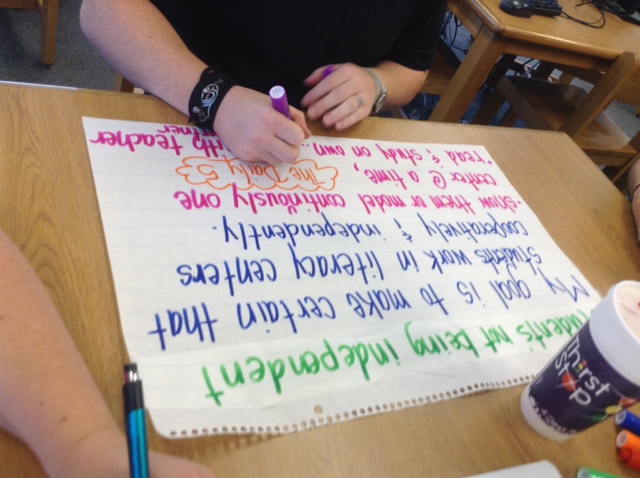 students not being independent
My goal is to make certain that
students work in literacy centers
cooperatively & independently.
•show them or model continuously one
center @ a time,
The Daily 5
*read & study on own... with teacher
partner
Thirst
Stop